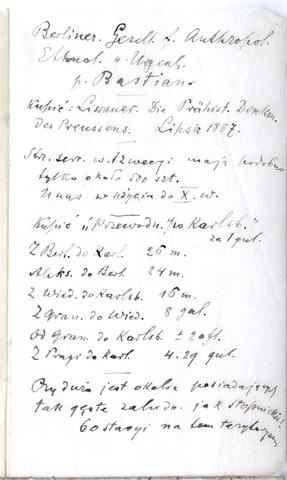 Berliner. Gesell. f. Anthropol.
Ethnol. u. Urgesch.
p. Bastian.
Kupić: Lissauer. Die Prähist. Denkm.
des Preussens. Lipsk 1887.
Str. w. Szwecyi mają podobno
tylko około 500 szt.
U nas w użyciu do X. w.
Kupić "Przewodn. po Karlsb."
za 1 gul.
Z Berl. do Karl. 26 m.
Aleks. do Berl. 24 m.
Z Wied. do Karlsb. 16 m.
Z Gran. do Wied. 8 gul.
Od Gran. do Karlsb. ± 20 fl.
Z Pragi do Karl. 4.29 gul.
Czy dużo jest okolic posiadających
tak gęste zaludn. jak Stopnickie?
60 stacyj na tem terytoryum